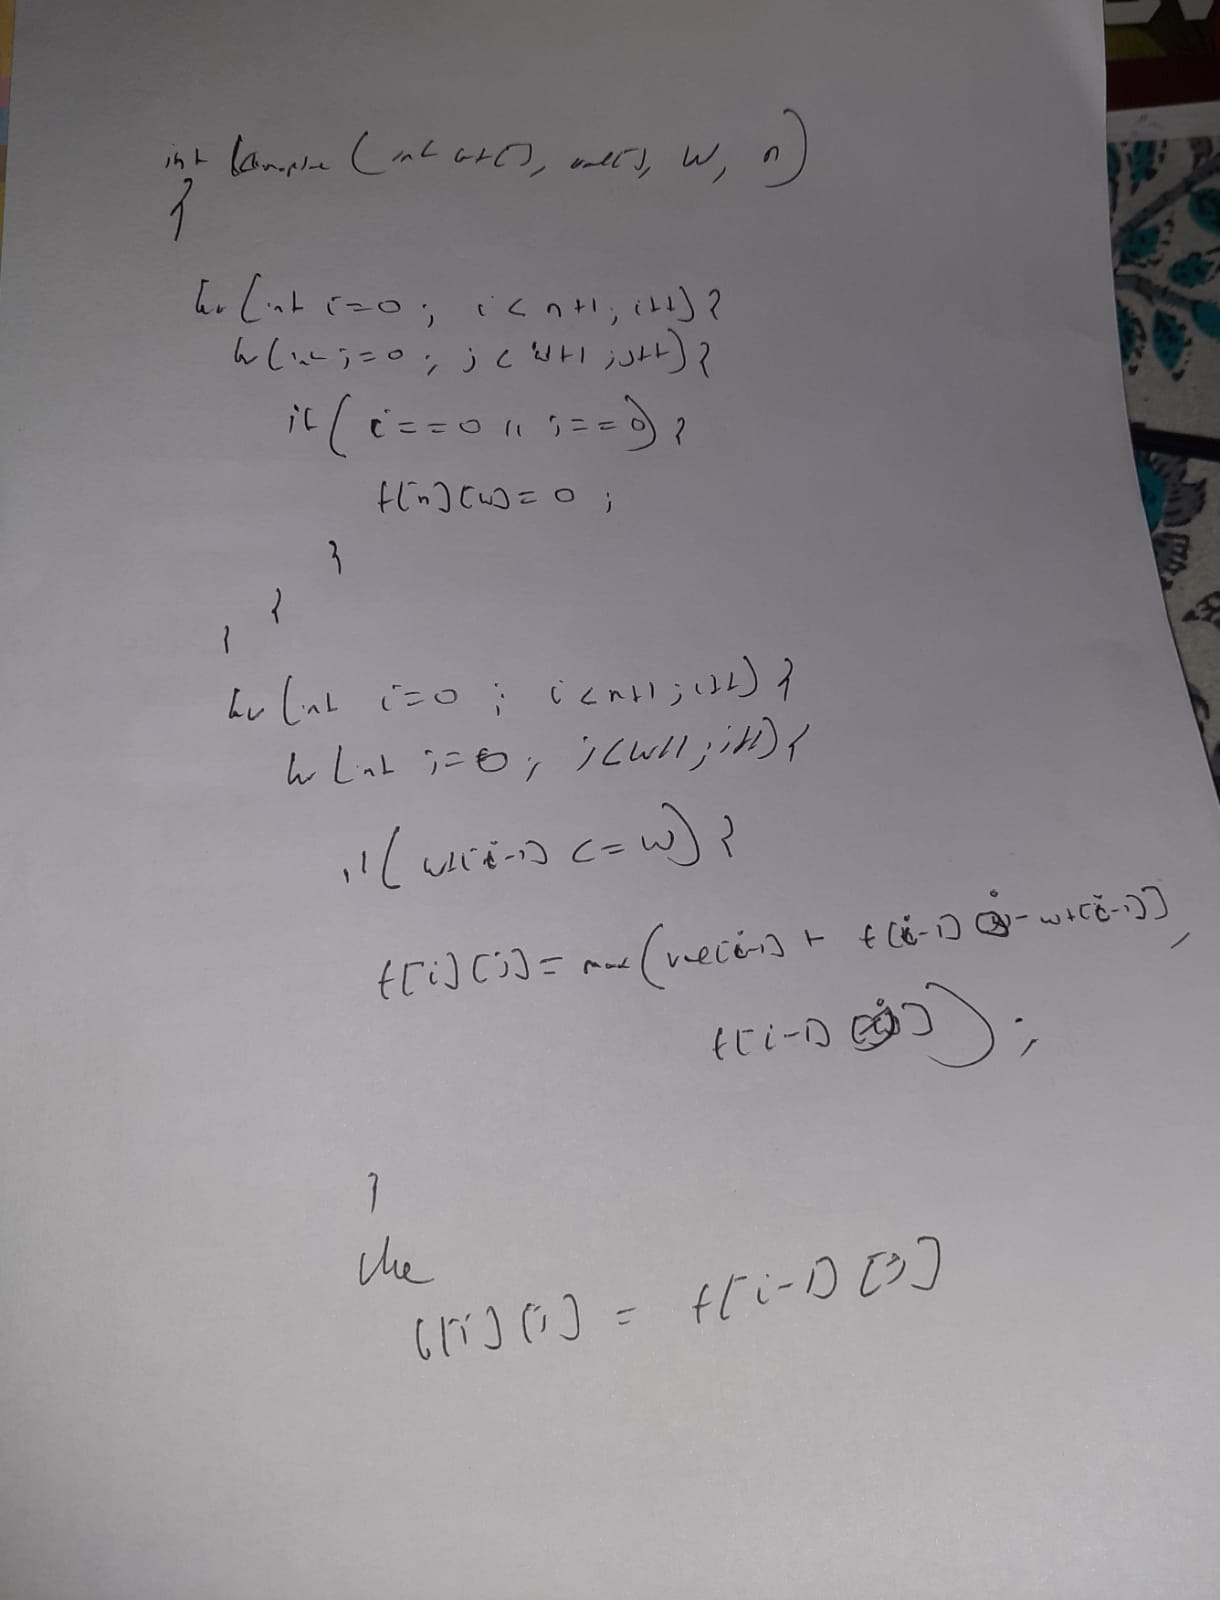 int knapsack (int wt[], val[], W, n)
{
for (int i=0; i<n+1; i++) {
for (int j=0; j<W+1; j++) {
if (i==0 || j==0) {
t[n][w]=0;
}
}
}
for (int i=0; i<n+1; i++) {
for (int j=0; j<W+1; j++) {
if (wt[i-1] <= W) {
t[i][j] = max (val[i-1] + t[i-1][j-wt[i-1]],
t[i-1][j]);
}
else
t[i][j] = t[i-1][j]